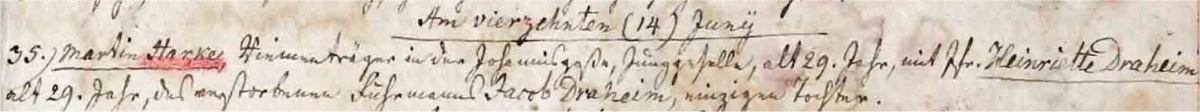 Am vierzehnten (14) Juny
35.) Martin Starke, Riementräger in der Johannisgaße, Junggeselle, alt 29. Jahr, mit Jfr. Heinriette Draheim
alt 29. Jahr, des verstorbenen Fuhrmanns Jacob Draheim, einzigen Tochter.